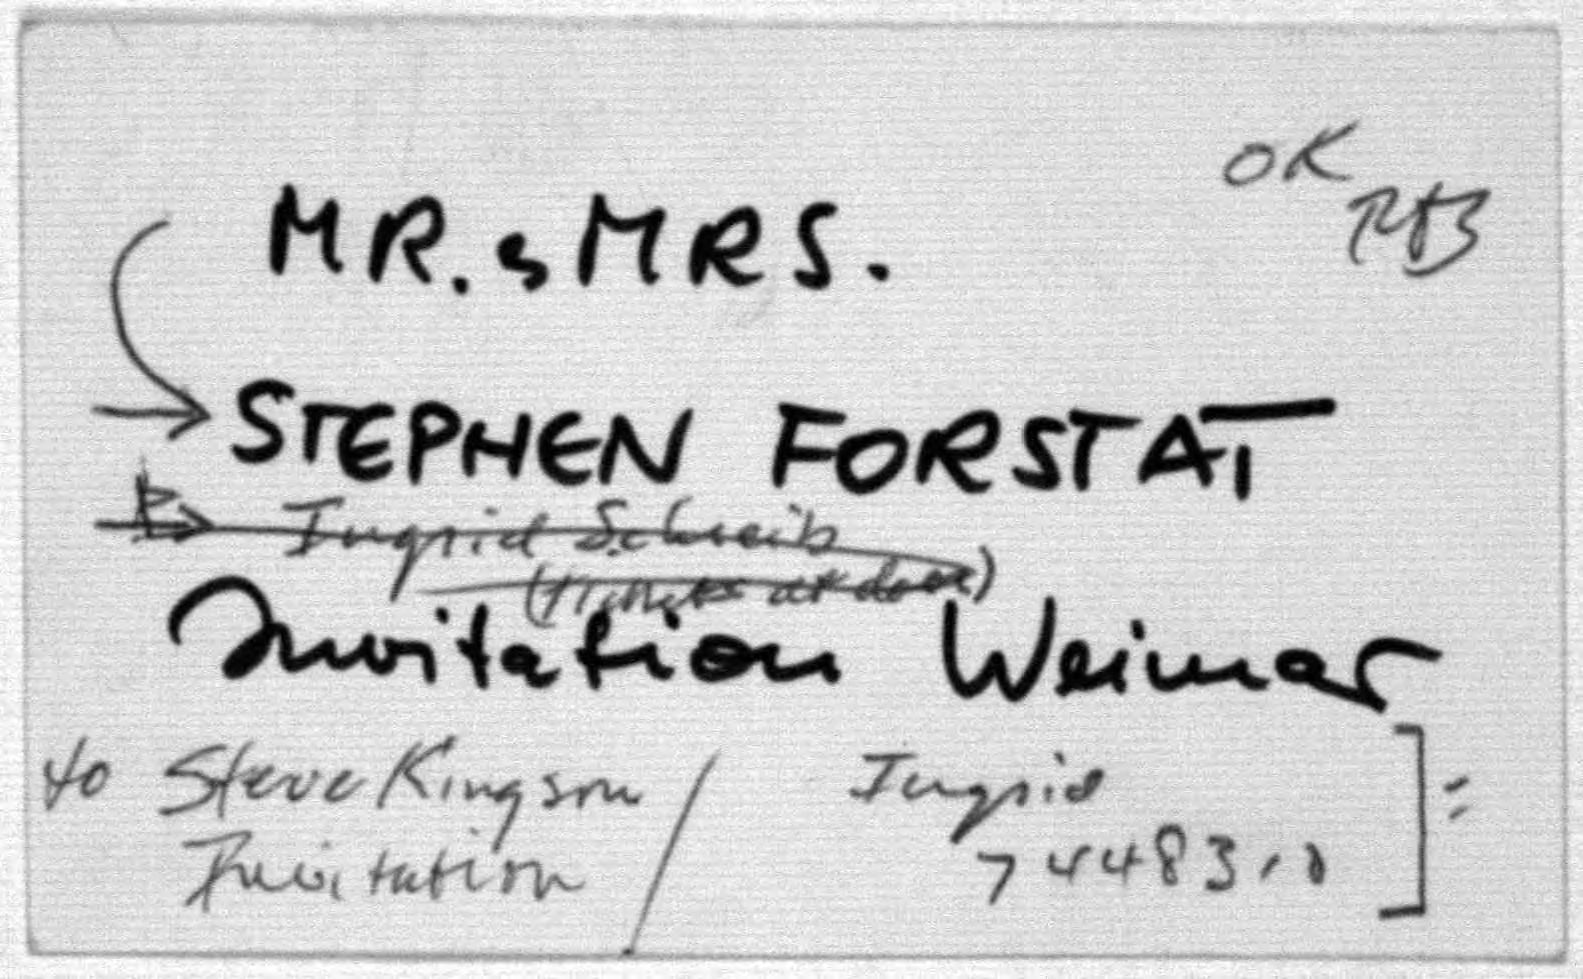 OK
MR. & MRS.
STEPHEN FORSTAT
Ingrid Schreib
(tickets at door)
Invitation Weimar
to Steve Kingson / Ingrid
Invitation 744831